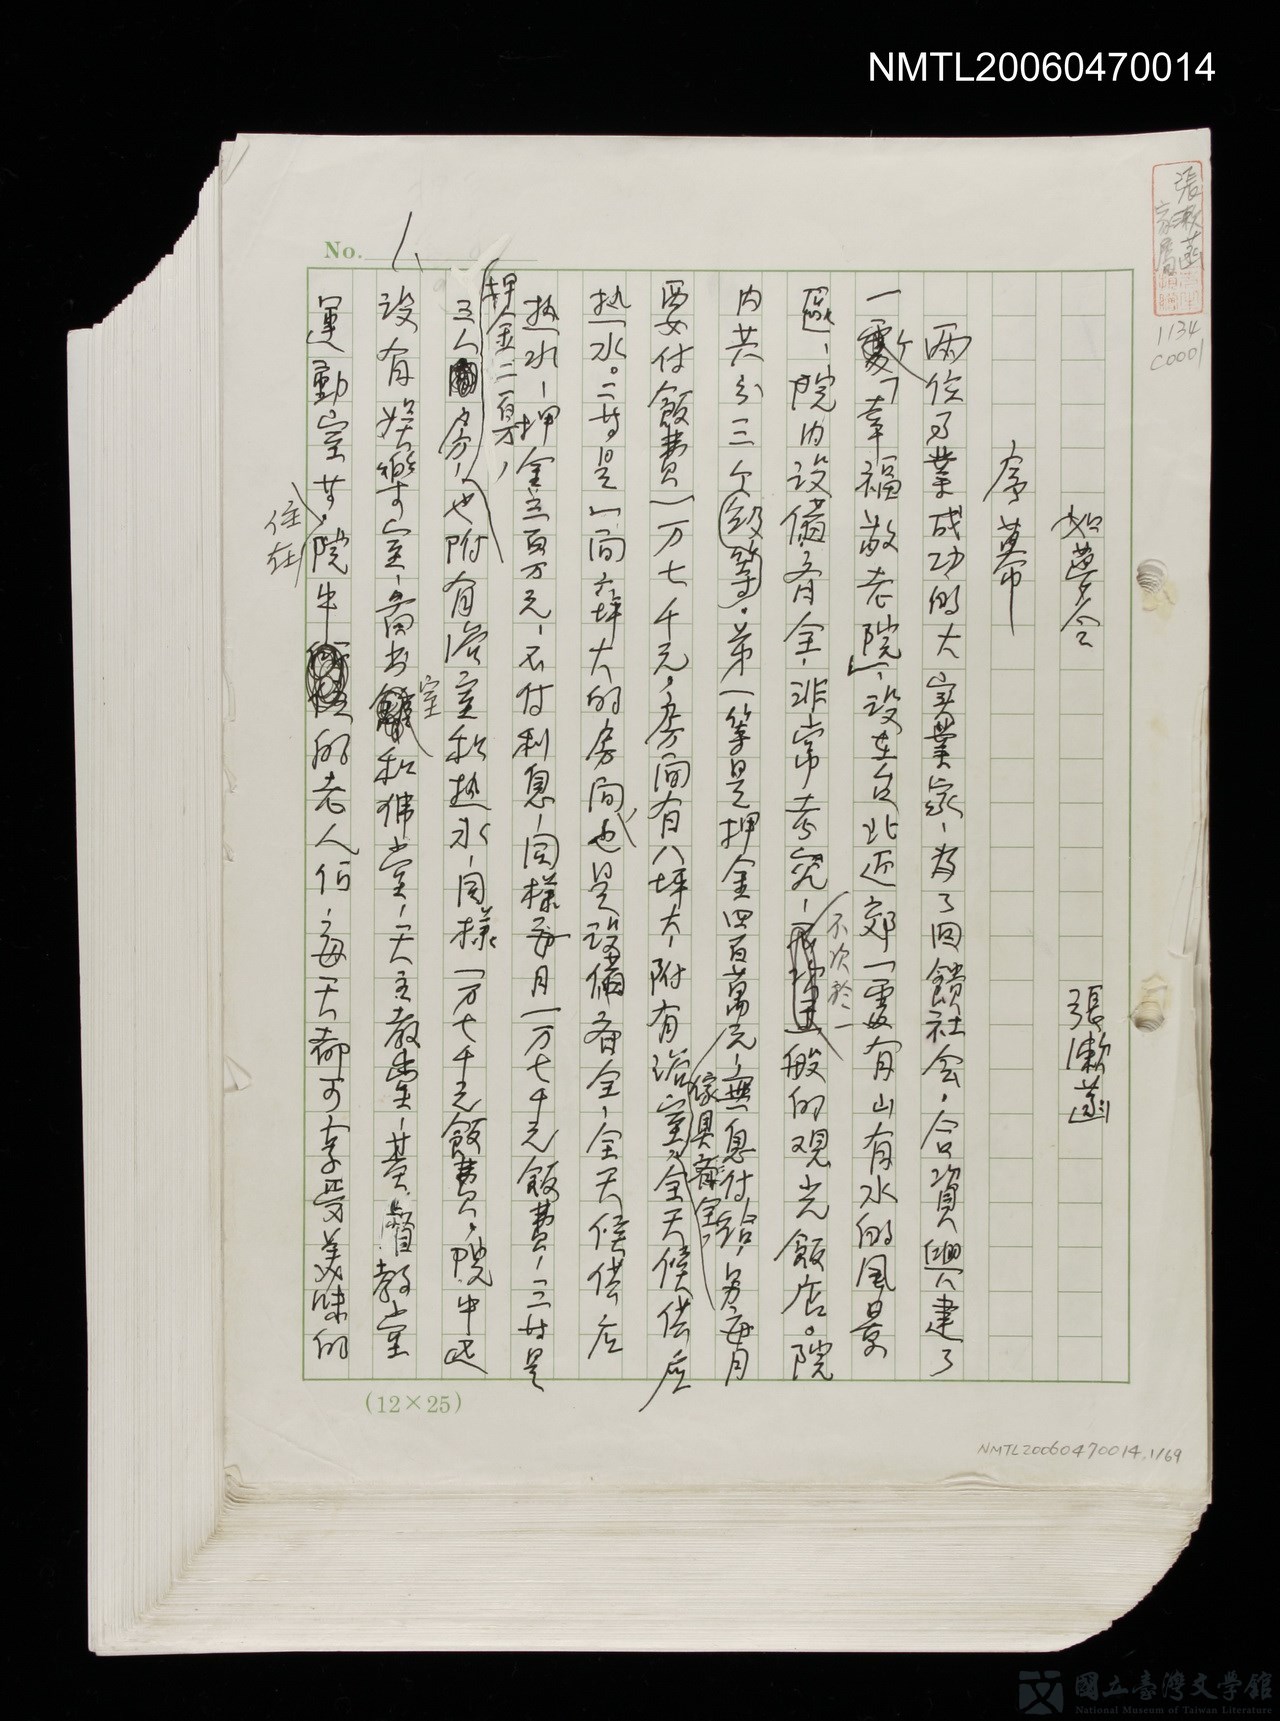 NMTL20060470014
張漱菡
家屬
1134
C0001
No. 1
如夢令 張漱菡
序幕
兩位事業成功的大実業家，為了回饋社会，合資興建了
一個「幸福敬老院」，設在台北近郊一處有山有水的風景
區，院內設備齊全，非常考究，不次於一般的观光飯店。院
内共分三个等級。第一等是押金四百萬元，無息付給，另每月
要付飯費一万七千元，房間有八坪大，附有浴室，傢具齊全，全天候供应
热水。二等是一間六坪大的房間，也是設備齊全，全天候供应
热水，押金三百万元，不付利息，同樣每月一万七千元飯費，三等是
三人房，押金二百萬，也附有浴室和热水，同樣一万七千元飯費。院中还
設有娱樂室，图书室和佛堂，天主教堂，基督教室
運動室等。院中住在的老人們，每天都可享受美味的
(12×25)
NMTL20060470014,1/69
國立臺灣文學館
National Museum of Taiwan Literature